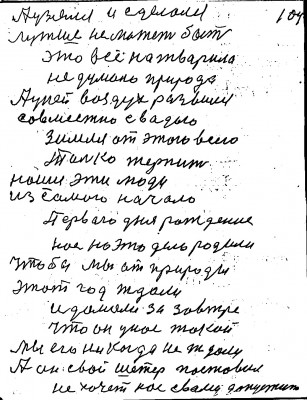 А узяли и сделали 104
лутше не может быт
это всё натварила
не думано природа
А упей воздух развили
совместно с вадою
Земля от этого всего
Толко терпит
наши эти люди
из самого начало
Первага дня рождение
нас на это дело родили
Чтобы мы от природы
этот год ждали
и думали за завтре
что он у нас такой
мы его никогда не ждали
А он свой шатер поставил
не хочет нас сваму допустит